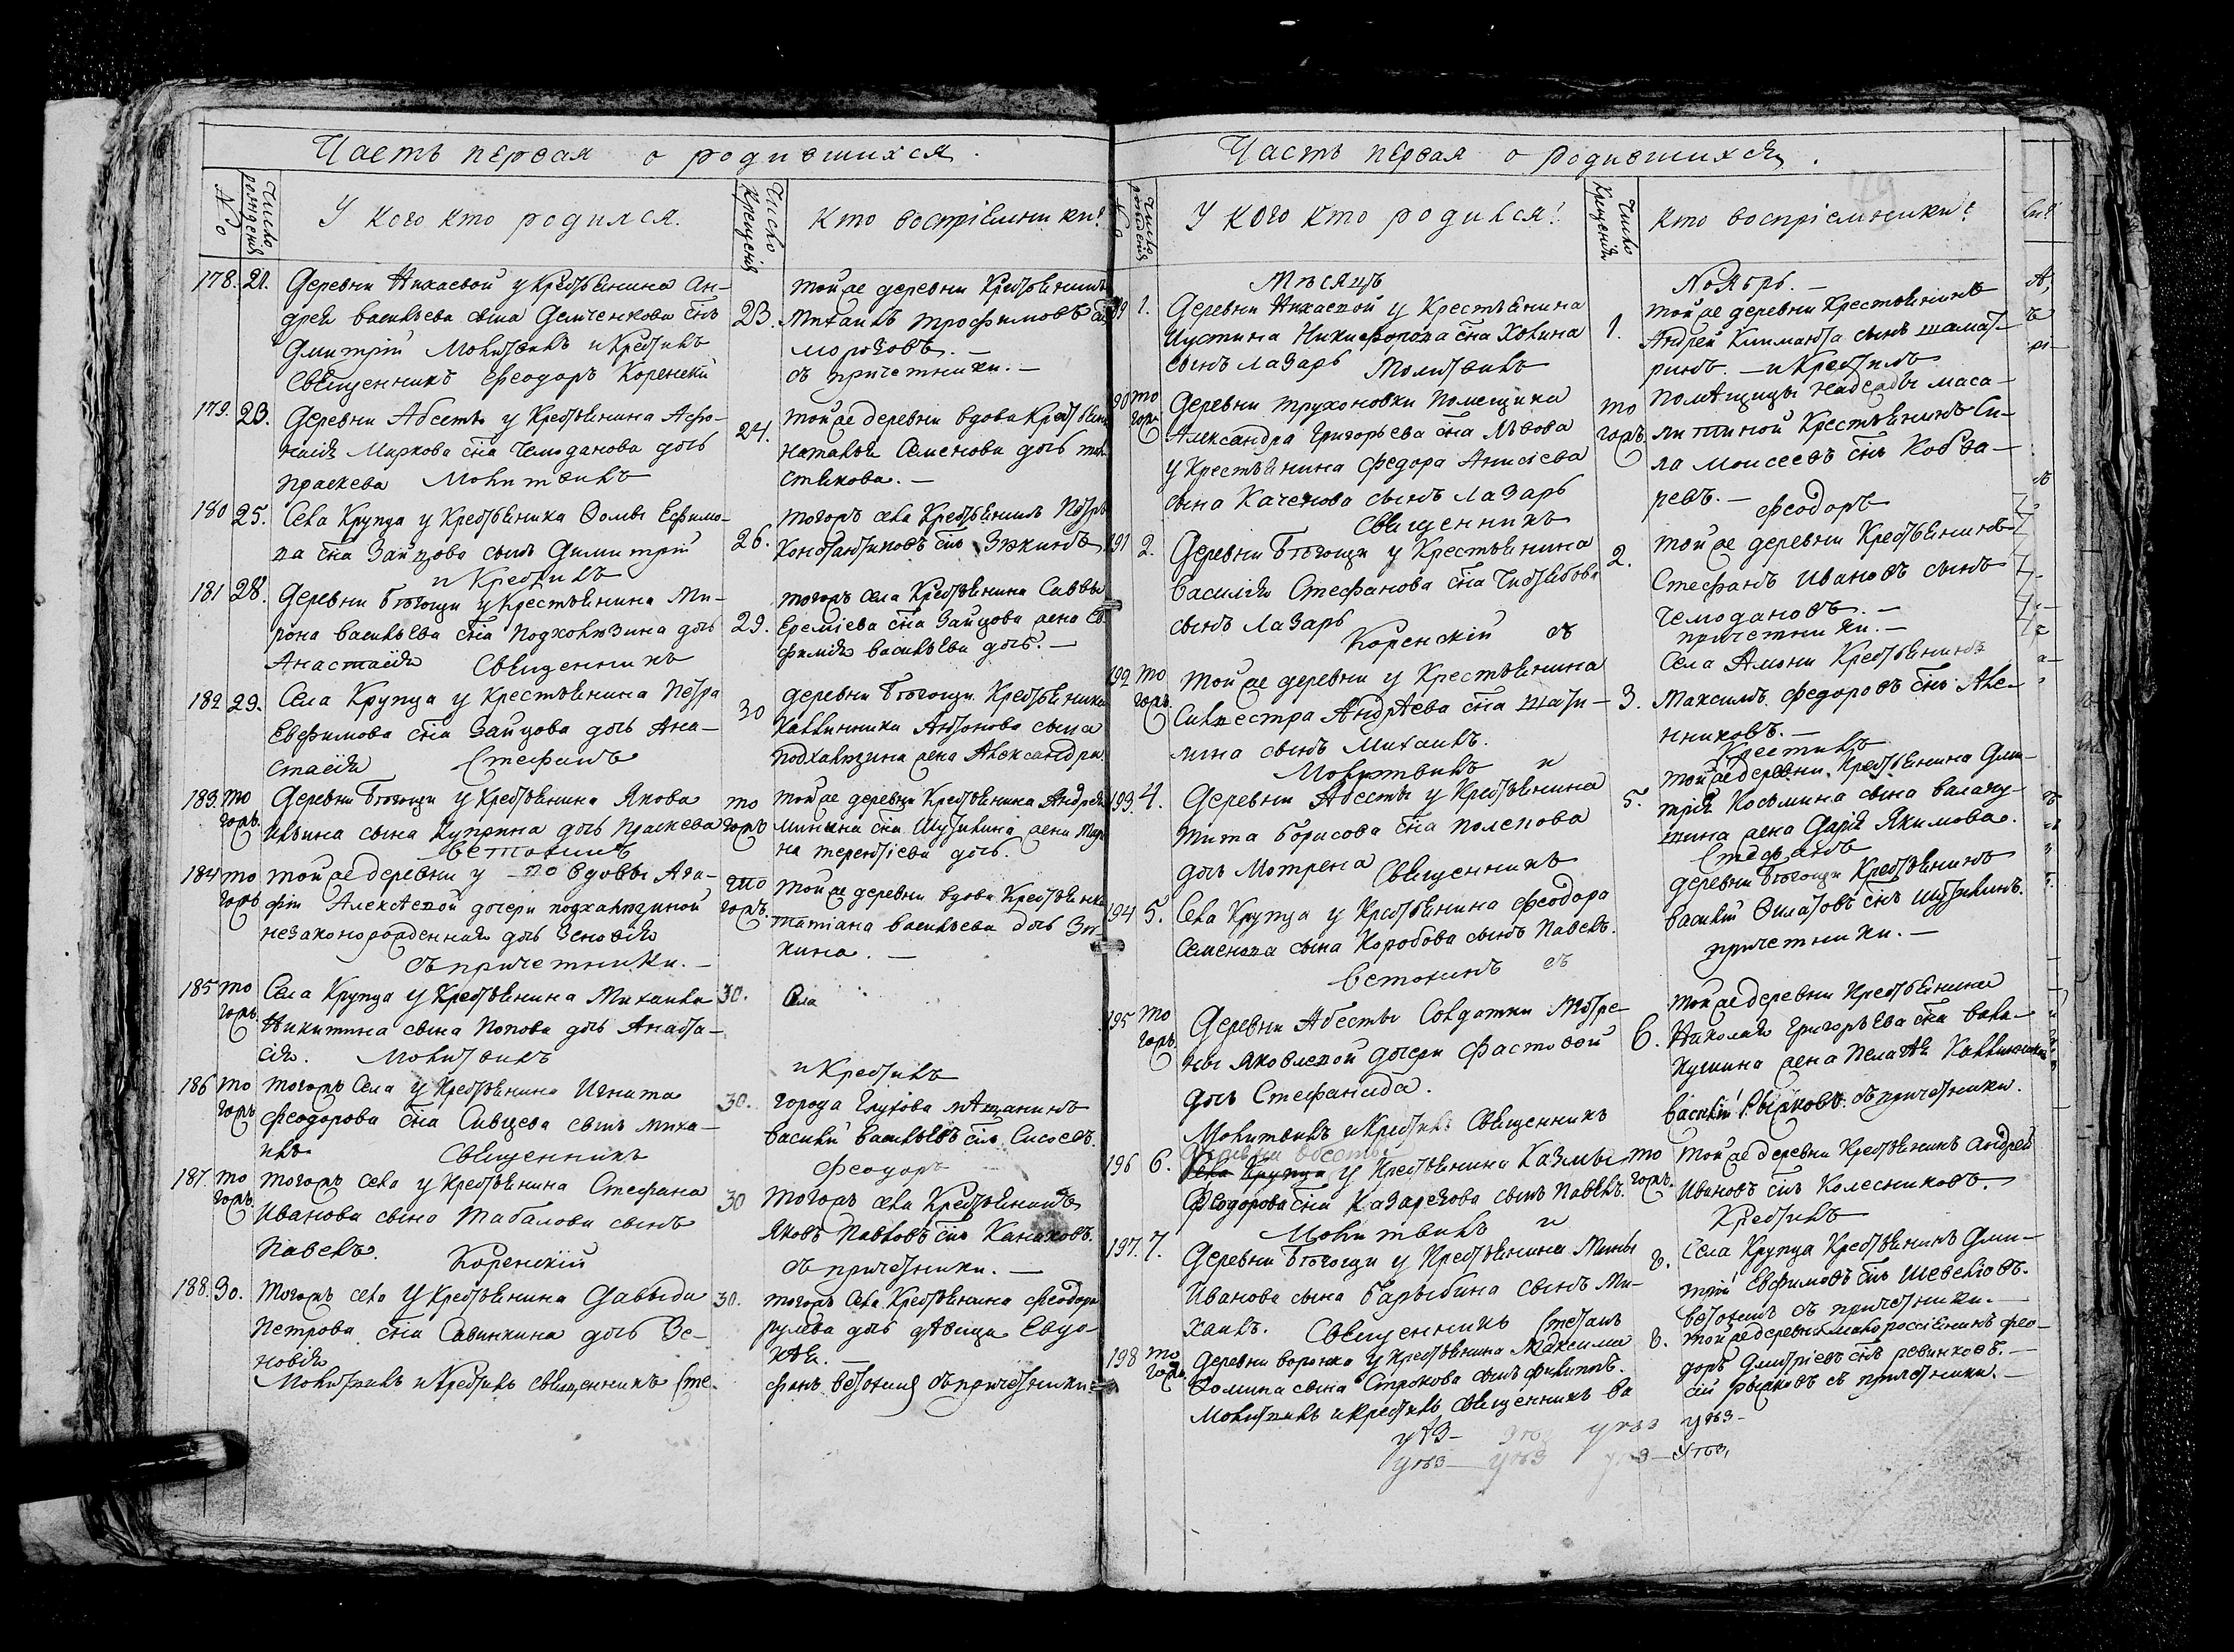 Часть первая о родившихся.
№
Число рождения
У кого кто родился.
Число крещения
Кто восприемники?
178. 21. Деревни Нихаевой у Крестьянина Ан-
дрея Васильева сына Демченкова снъ
Дмитрій Молитвилъ и Крестилъ
Священникъ Феодоръ Коренскій
23. той же деревни Крестьянинъ
Михаилъ Трофимовъ
Морозовъ. —
съ причетники. —
179. 23. Деревни Абесты у Крестьянина Афо-
насія Маркова сна Чемоданова дочь
Праскева Молитвилъ
24. той же деревни вдова
Наталья Семенова дочь
180 25. Села Крупца у Крестьянина Ѳомы Ефимо-
ва сна Зайцова сынъ Димитрій
и Крестилъ
26. тогожъ села Крестьянинъ Петръ
Константиновъ снъ Зюкинъ
181 28. Деревни Бѣгощи у Крестьянина Ми-
рона Васильева сна Подхолюзина дочь
Анастасія Священникъ
29. тогожъ села Крестьянина Саввы
Еремѣева сна Зайцова жена Ев-
фимія Васильева дочь. —
182 29. Села Крупца у Крестьянина Петра
Евфимова сна Зайцова дочь Ана-
стасія Стефанъ
30 деревни Бѣгощи Крестьянина
Каллиника Антонова сына
Подхалюзина жена Александра
183. тогожъ Деревни Бѣгощи у Крестьянина Якова
Ильина сына Куприна дочь Праскева
Ветохинъ
тогожъ той же деревни Крестьянина Андрея
Минина сна Шуткина жена
на Терентіева дочь.
184 тогожъ той же деревни у вдовы Ага-
фіи Алексѣевой дочери Подхалюзиной
незаконорожденная дочь Зеновія
съ причетники. —
тогожъ. той же деревни вдова
Татіана Васильева дочь Зю-
кина. —
185 тогожъ. Села Крупца у Крестьянина Михаила
Никитина сына Попова дочь Анаста-
сія. Молитвилъ
30. Села
и Крестилъ
186 тогожъ тогожъ Села у Крестьянина Игната
Феодорова сна Сивцева снъ Миха-
илъ Священникъ
30. города Глухова мѣщанинъ
Василій Васильевъ снъ Сисоевъ.
Феодоръ
187. тогожъ тогожъ села у Крестьянина Стефана
Иванова сына Табалова сынъ
Павелъ. Коренскій
30 тогожъ села Крестьянинъ
Яковъ Павловъ снъ Канаховъ.
съ причетники. —
188. 30. тогожъ села у Крестьянина Давыда
Петрова сна Савинкина дочь Зе-
новія
Молитвилъ и Крестилъ священникъ Сте-
30. тогожъ села Крестьянина Феодора
дочь дѣвица Евдо-
кѣя. —
фанъ Ветохинъ съ причетники
Часть первая о родившихся.
№
Число рождения
У кого кто родился?
Число крещения
Кто восприемники?
Мѣсяцъ Ноябрь. —
189 1. Деревни Нихаевой у Крестьянина
Иустина Никифорова сна Хохина
сынъ Лазарь Молитвилъ
1. той же деревни Крестьянинъ
Андрей Климантов сынъ Шамат-
ринъ. — и Крестилъ
190 тогожъ Деревни Трухоновки Помещика
Александра Григорьева сна Львова
у Крестьянина Федора Анисіева
сына Каченова сынъ Лазарь
Священникъ
тогожъ Помѣщицы Надежды Маса-
литиной Крестьянинъ Си-
ла Моисеевъ снъ Кобза-
ревъ. — Феодоръ
191 2. Деревни Бѣгощи у Крестьянина
Василія Стефанова сна
сынъ Лазарь Коренскій съ
2. той же деревни Крестьянинъ
Стефанъ Ивановъ сынъ
Чемодановъ. —
причетники. —
192 тогожъ. той же деревни у Крестьянина
Силвестра Андрѣева сна Шати-
лина сынъ Михаилъ.
Молитвилъ и
3. Села Амони Крестьянинъ
Максимъ Федоровъ снъ Але-
нниковъ. —
Крестилъ
193. 4. Деревни Абесты у Крестьянина
Тита Борисова сна Полепова
дочь Мотрена Священникъ
5. той же деревни Крестьянина Дми-
трія Косьмина сына Балагу-
шина жена Дарія Якимова.
Стефанъ
194 5. Села Крупца у Крестьянина Феодора
Семенова сына Коробова сынъ Павелъ.
Ветохинъ съ
деревни Бѣгощи Крестьянинъ
Василій Филатовъ снъ Шуткинъ.
причетники. —
195 тогожъ Деревни Абесты Солдатки Мотре-
ны Яковлевой дочери Фастовой
дочь Стефанида.
Молитвилъ и Крестилъ Священникъ
6. той же деревни Крестьянина
Николая Григорьева сна Бала-
кушина жена Пелагѣя
Василій Рыжковъ съ причетники.
196 6. Деревни Абесты
Села Крупца у Крестьянина Казмы
Феодорова сна Казарезова сынъ Павелъ.
Молитвилъ и
тогожъ. той же деревни Крестьянинъ Андрей
Ивановъ снъ Колесниковъ.
Крестилъ
197. 7. Деревни Бѣгощи у Крестьянина Мины
Иванова сына Барыбина сынъ Ми-
хаилъ. Священникъ Стефанъ
8. Села Крупца Крестьянинъ Дми-
трій Евфимовъ снъ Шевелювъ.
Ветохинъ съ причетники. —
198 тогожъ Деревни Воронка у Крестьянина Максима
Фомина сына Строкова снъ Филиппъ.
Молитвилъ и Крестилъ Священникъ Ва
8. той же деревни малороссіянинъ Фео-
доръ Дмитріевъ снъ Ревинковъ. —
сій Рыжковъ съ причетники. —
уѣз- уѣз уѣз-
уѣз- уѣз уѣз- уѣз,